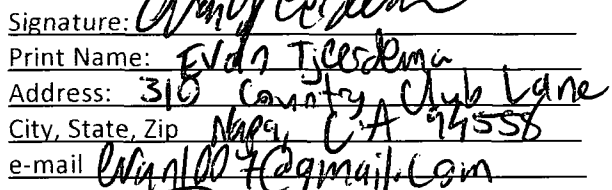 Signature:
Print Name: Evan Tjeerdema
Address: 310 Country Club Lane
City, State, Zip Napa, CA 94558
e-mail evan1007@gmail.com